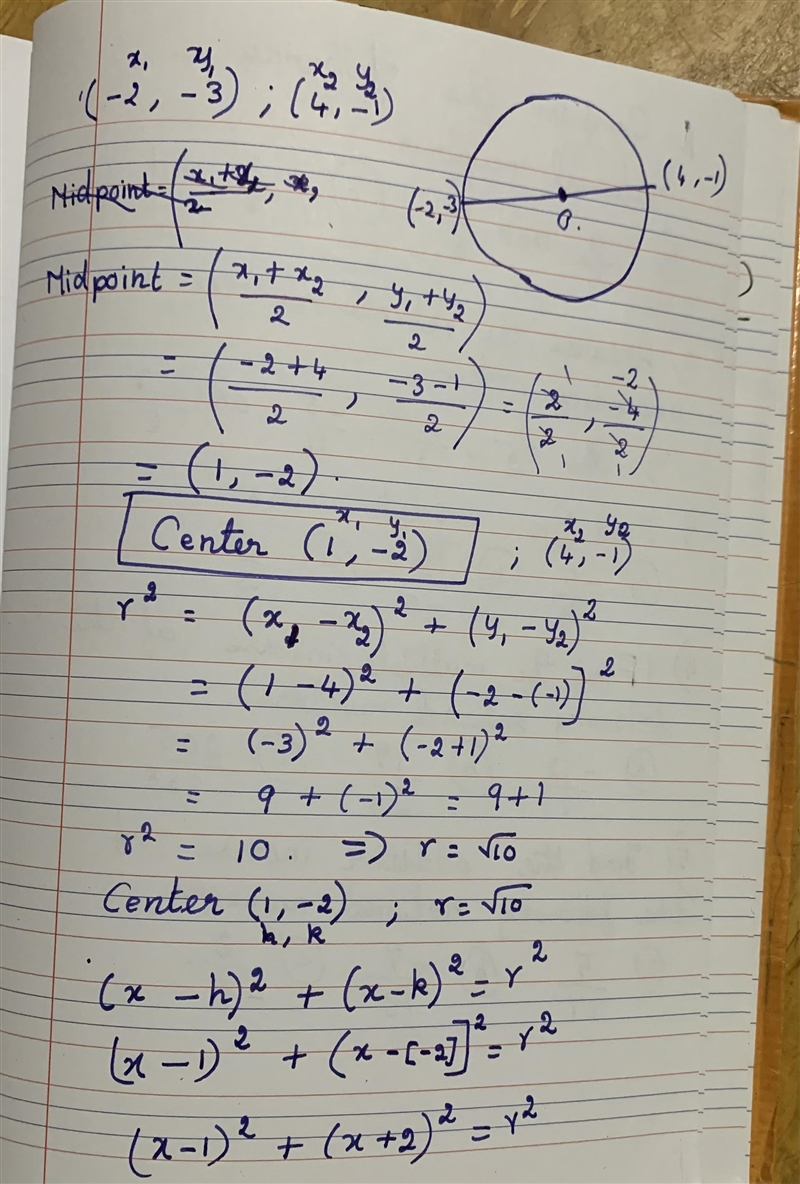 x₁ y₁ x₂ y₂
(-2, -3) ; (4, -1)
(-2, -3) (4, -1)
O.
Midpoint = (x₁ + x₂/2, x,
Midpoint = ( (x₁ + x₂)/2 , (y₁ + y₂)/2 )
= ( (-2+4)/2 , (-3-1)/2 ) = ( 2/2 , -4/2 ) 1 -2 1 1
= (1, -2).
x₁ y₁ x₂ y₂
Center (1, -2) ; (4, -1)
r² = (x₁ - x₂)² + (y₁ - y₂)²
= (1 - 4)² + (-2 - (-1)]²
= (-3)² + (-2+1)²
= 9 + (-1)² = 9+1
r² = 10. => r = √10
Center (1, -2) ; r = √10
h, k
(x - h)² + (x - k)² = r²
(x - 1)² + (x - [-2]]² = r²
(x-1)² + (x+2)² = r²